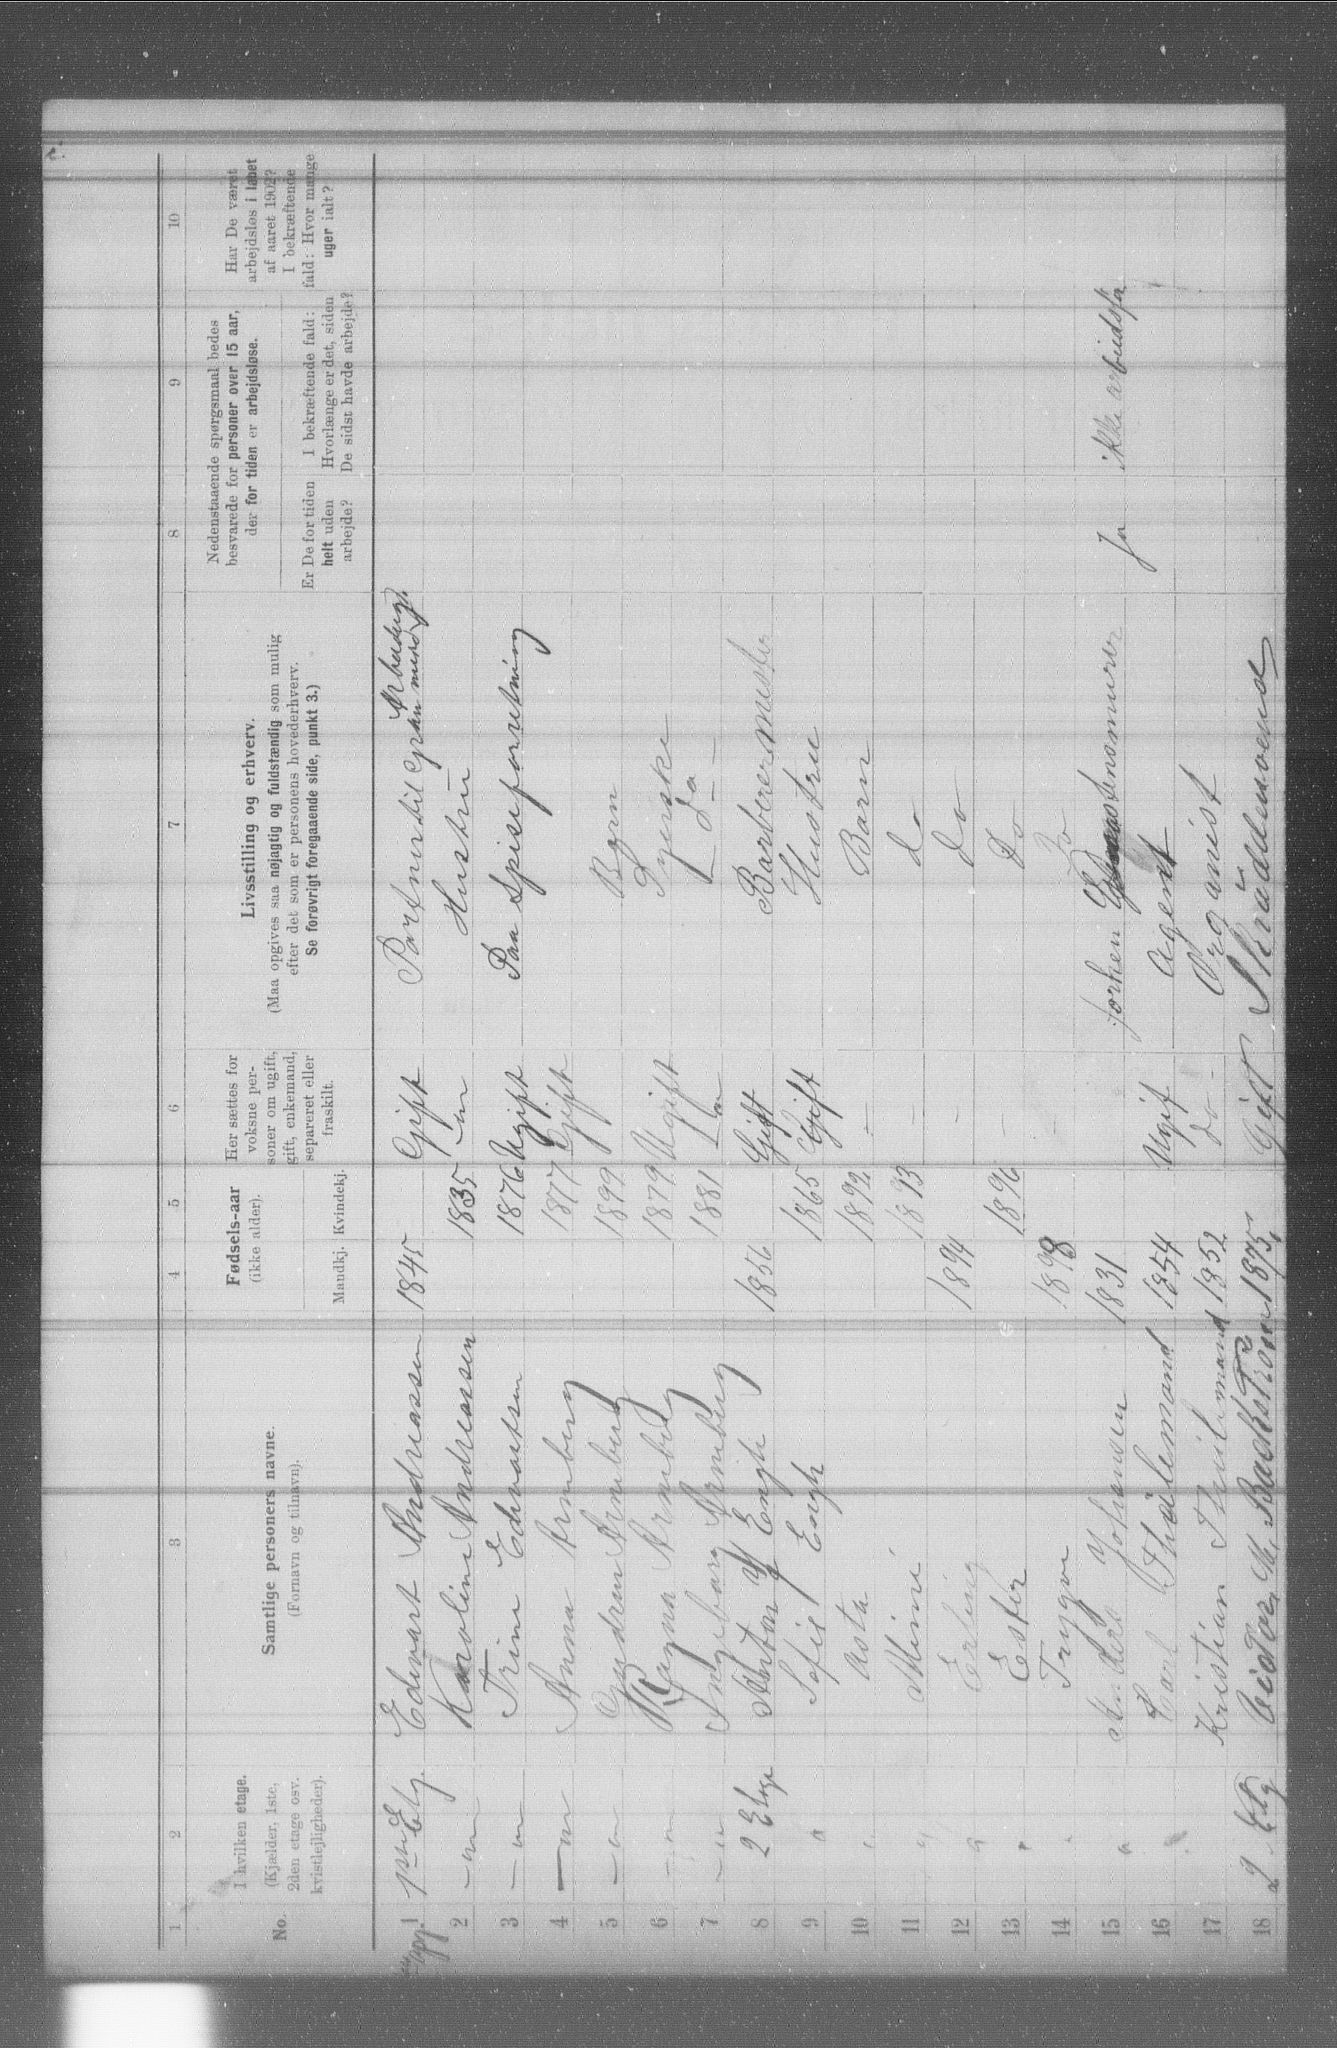 1 2 3 4 5 6 7 8 9 10
No.
I hvilken etage.
(Kjælder, 1ste,
2den etage osv.
kvistlejligheder).
Samtlige personers navne.
(Fornavn og tilnavn).
Fødsels-aar
(ikke alder).
Mandkj. Kvindekj.
Her sættes for
voksne per-
soner om ugift,
gift, enkemand,
separeret eller
fraskilt.
Livsstilling og erhverv.
(Maa opgives saa nøjagtig og fuldstændig som mulig
efter det som er personens hovederhverv.
Se forøvrigt foregaaende side, punkt 3.)
Nedenstaaende spørgsmaal bedes
besvarede for personer over 15 aar,
der for tiden er arbejdsløse.
Er De for tiden
helt uden
arbejde?
I bekræftende fald:
Hvorlænge er det, siden
De sidst havde arbejde?
Har De været
arbejdsløs i løbet
af aaret 1902?
I bekræftende
fald: Hvor mange
uger ialt?
1 Etg. Edvart Andreassen 1845 Gift
2 — Karoline Andreassen 1835 — Hustru
3 — Trine Edvartsen 1876 Ugift Paa Spiseforretning
4 — Anna Arneberg 1877 Gift
5 — Gudrun Arneberg 1899 Barn
6 — Ragna Arneberg 1879 Ugift Syerske
7 — Ingeborg Arneberg 1881 — do —
8 2 Etage Anton Engh 1856 Gift Barberermester
9 " Sofie Engh 1865 Gift Hustrue
10 " Asta 1892 — Barn
11 " Mimi 1893 — do
12 " Erling 1894 — do
13 " Ester 1896 — Do
14 " Trygve 1898 — Do
15 " Anders Johansen 1831 forhen Ja ikke arbeidsfør
16 Carl Thålemand 1854 Ugift Agent
17 Kristian 1852 do - Organist
18 2 Etg Victor M. Backström 1875 Gift Skräddersvend